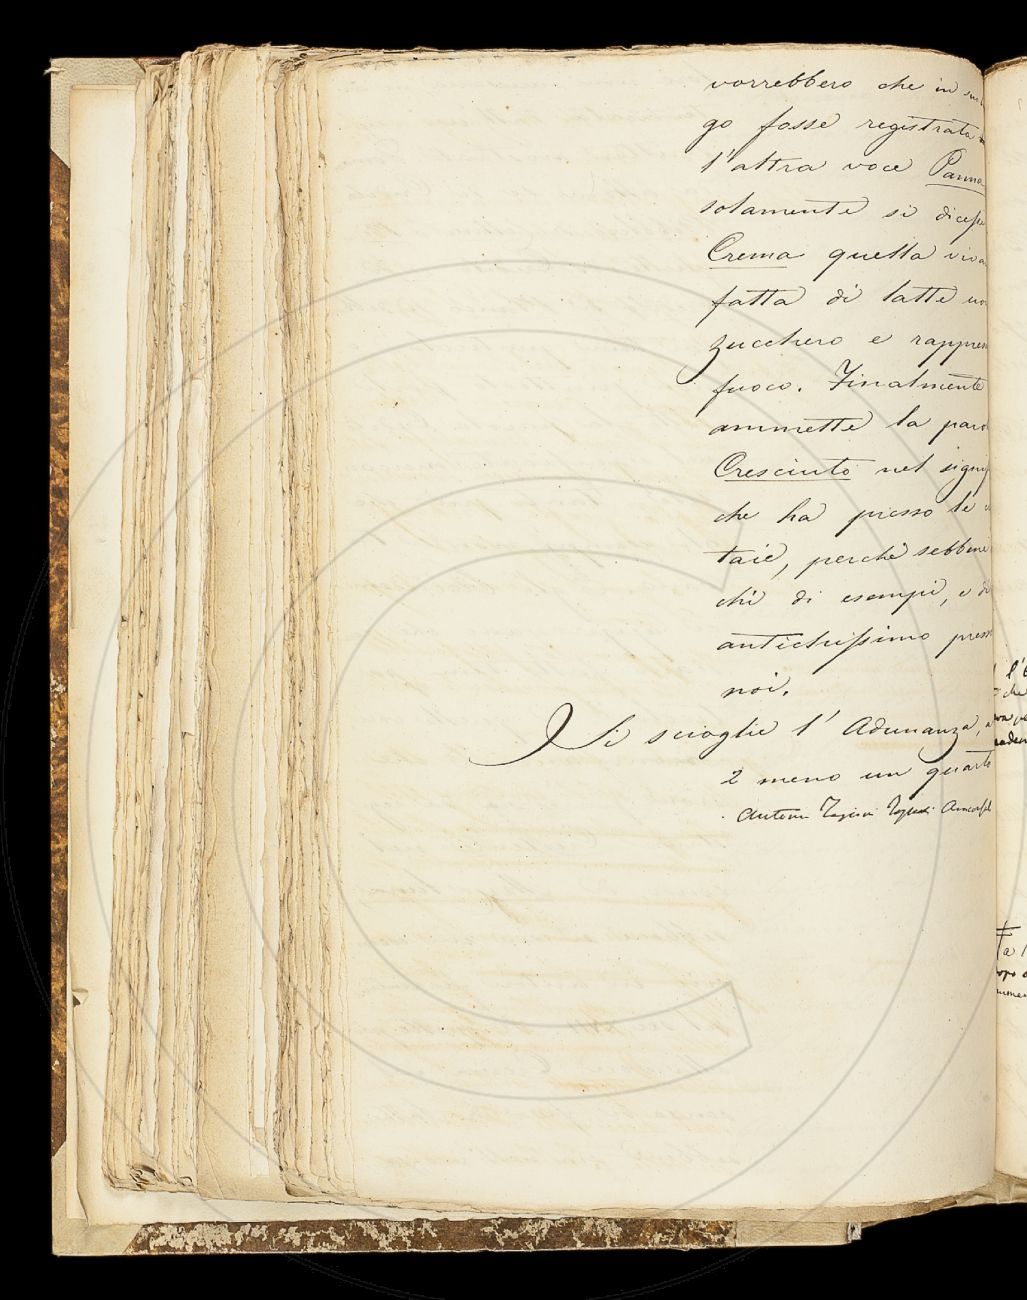 vorrebbero che in
go fosse registrata
l'altra voce Panna
solamente si dicesse
Crema quella viva
fatta di latte uo
zucchero e rappre
fuoco. Finalmente
ammette la paro
Cresciuto nel signif
che ha presso le
taie, perchè sebbene
chi di esempi, e d
antichissimo press
noi.
Si scioglie l'Adunanza, a
2 meno un quarto